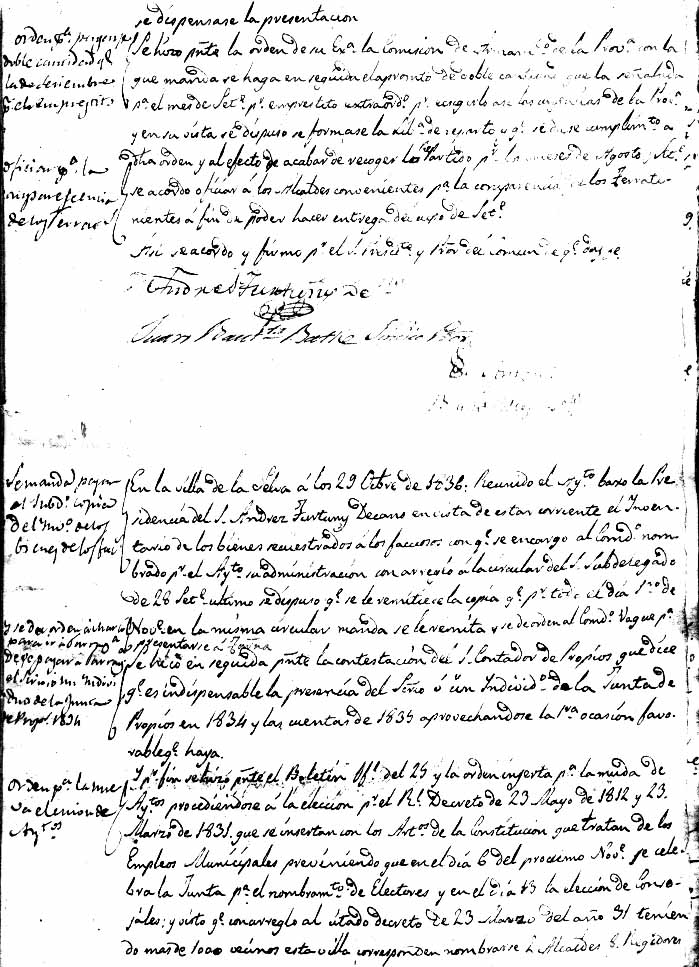 se dispensase la presentacion
orden pª
doble cantidad q.e
la de Setiembre
Se hizo pnte la orden de su Exª la Comision de Armamto de la Provª con la
que manda se haga en seguida el apronto de doble cantidad que la señalada
pª el mes de Set.e pr emprestito extraordo pª las urgencias de la Provª
y en su vista se dispuso se formase la de reparto y qe se diese cumplimto a
dha orden y al efecto de acabar de recoger los Partido pr los meses de Agosto y Set.e
se acordo oficiar á los Alcaldes convenientes pª la comparencia de los Terrate-
nientes á fin de poder hacer entrega del cupo de Set.e
oficiar pª la
comparescencia
de los Terrats
Asi se acordo y firmo pr el Sr Presidte y Pror del comun de qe doy fe
Andres Furtuny De
Juan Bauta Batlle Sindico Pror
Se manda pasar
al Subdo copia
del Invo de los
bienes de los fac
En la villa de la Selva á los 29 Otbre de 1836: Reunido el Aytto baxo la Pre-
sidencia del S. Andrez Furtuny Decano en vista de estar corriente el Inven-
tario de los bienes secuestrados á los facciosos con qe se encargo al Comdo nom-
brado pr el Aytto su administración con arreglo á la circular del Sr Subdelegado
de 28 Set.e ultimo se dispuso qe se le remitiese la copia qe pr todo el dia 1ro de
Nove en la misma circular manda se le remita y se de orden al Comdo Vaque pª
presentarse á
Se hizo en seguida pnte la contestación del Sr Contador de Propios que dice
qe es indispensable la presencia del Srio ó un Individo de la Junta de
Propios en 1834 y las cuentas de 1835 aprovechandose la 1ra ocasión favo-
rable qe haya.
y se da orden
De pasar á Tarrag
el Srio ó un Indivi-
duo de la Junta
de Props 1834
Y pr fin se hizo pnte el Boletin Ofl del 25 y la orden inserta pª la muda de
Ayttos procediendose á la elección pr el Rl Decreto de 23 Mayo de 1812 y 23
Marzo de 1831. que se insertan con los Artos de la Constitución que tratan de los
Empleos Municipales previniendo que en el dia 6 del procsimo Nove se cele-
bra la Junta pª el nombramto de Electores y en el dia 13 la elección de Conse-
jales: y visto qe con arreglo al citado decreto de 23 Marzo del año 31 tenien-
do mas de 1000 vecinos esta villa corresponden nombrarse 2 Alcaldes 8 Regidores
orden pª la nue-
va eleccion de
Ayttos